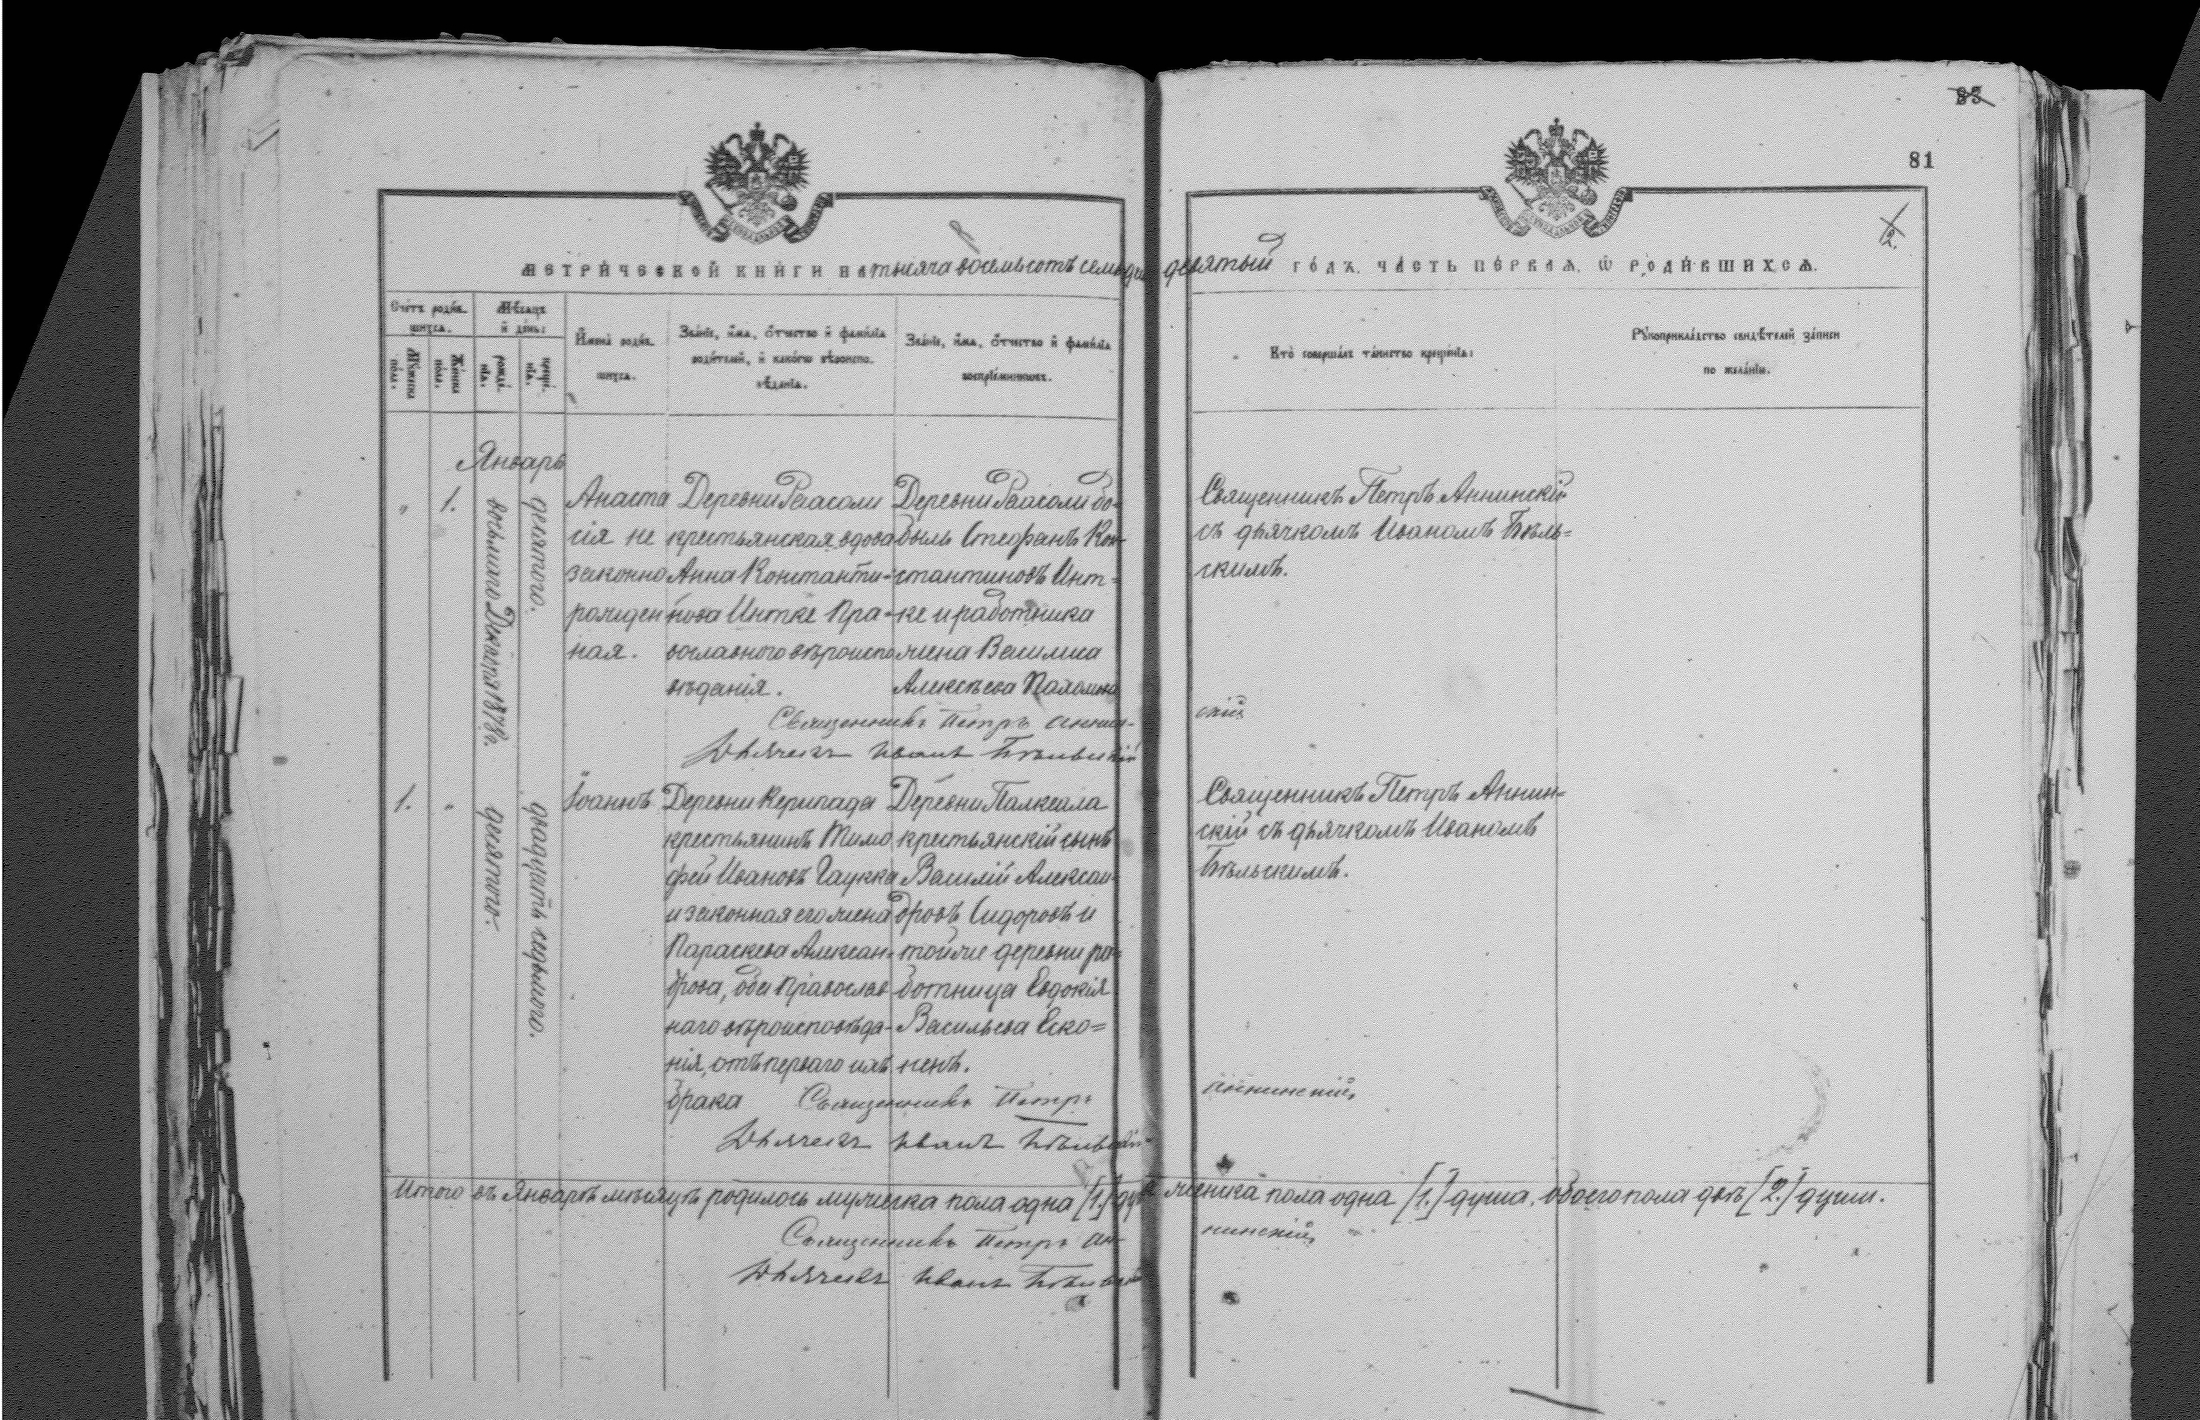 83
81
2.
МЕТРИЧЕСКОЙ КНИГИ НА тысяча восемьсотъ семьде девятый ГОДЪ, ЧАСТЬ ПЕРВАЯ, Ѡ РОДИВШИХСЯ.
Счетъ родив-
шихся.
Мужеска
пола.
Женска
пола.
Мѣсяцъ
и день:
рожде-
нія.
креще-
нія.
Имена родив-
шихся.
Званіе, имя, отчество и фамилія
родителей, и какого вѣроиспо-
вѣданія.
Званіе, имя, отчество и фамилія
воспріемниковъ.
Кто совершалъ таинство крещенія:
Рукоприкладство свидѣтелей записи
по желанію.
Январь
" 1.
восьмаго Декабря 1878 г.
десятого.
Анаста
сія не
законно
рожден
ная.
Деревни Раасоли
крестьянская вдова
Анна Константи-
нова Интке пра-
вославного вѣроиспо
вѣданія.
Деревни Раасоли бо-
быль Стефанъ Кон-
стантиновъ Инт-
ке и работника
жена Василиса
Алексѣева Пахомова
Священникъ Петръ Аннинскій
съ дьячкомъ Иваномъ Бѣль=
скимъ.
Священникъ Петръ Аннин-
скій
Дьячекъ Иванъ Бѣльскій
1. "
десятого.
двадцать седьмого.
Іоаннъ
Деревни Керипада
крестьянинъ Тимо
фей Ивановъ Гаукка
и законная его жена
Параскева Алексан-
дрова, оба православ
наго вѣроисповѣда-
нія, отъ перваго ихъ
брака
Деревни Палкеала
крестьянскій сынъ
Василій Алексан-
дровъ Сидоровъ и
той же деревни ра-
ботница Евдокія
Васильева Еско=
ненъ.
Священникъ Петръ Аннин=
скій съ дьячкомъ Иваномъ
Бѣльскимъ.
Священникъ Петръ
Аннинскій
Дьячекъ Иванъ Бѣльскій
Итого въ Январѣ мѣсяцѣ родилось мужеска пола одна [1.] душа женска пола одна [1.] душа, обоего пола двѣ [2.] души.
Священникъ Петръ Ан-
нинскій
Дьячекъ Иванъ Бѣльскій